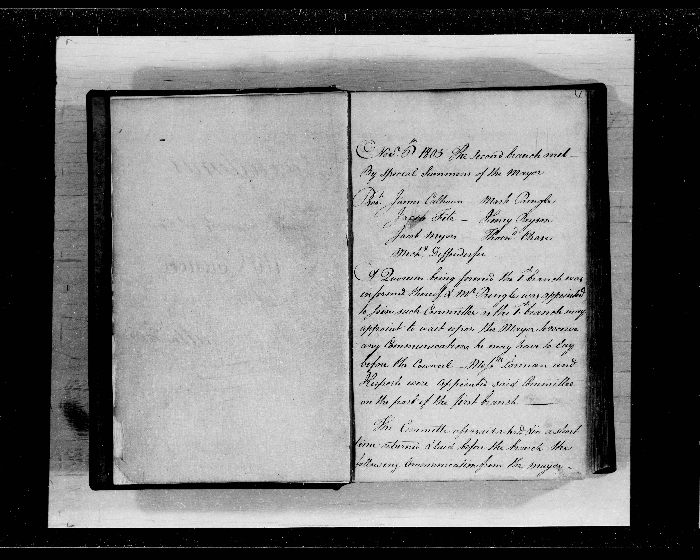 Nov. 5th 1803 The Second branch met
By Special Summons of the Mayor
Pres.t James Calhoun Mark Pringle
Jacob Fite Henry Payson
Jacob Myers Thorn.d Chase
Mich.l Diffenderfer
A Quorum being formed the 1st branch was
informed thereof & Mr. Pringle was appointed
to join such Committee as the 1st branch may
appoint to wait upon the Mayor to receive
any Communications he may have to lay
before the Council Mess.rs Lorman and
were appointed said Committee
on the part of the first branch
The Committee in a short
time returned & laid before the branch the
following Communication from the Mayor